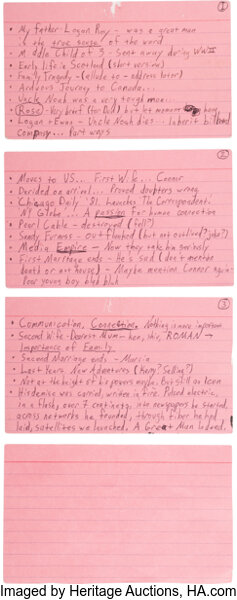 1
• My father Logan Roy - was a great man
in the true sense of the word
• Middle Child of 3 - Sent away during WWII
• Early life in Scotland (short version)
• Family Tragedy - (allude to - address later)
• Arduous Journey to Canada...
• Uncle Noah was a very tough man...
• (Rose) - Very brief (for Dad) but let moment hang
• Logan + Ewan - Uncle Noah dies... Inherit billboard
Company... Part ways
2
• Moves to US... First Wife... Connor
• Derided on arrival... Proved doubters wrong
• Chicago Daily '81. Launches The Correspondent.
NY Globe... A passion for human connection
• Pool Cable - destroyed (fell?)
• Sandy Furness - outflanked (but not outlived? joke?)
• Media Empire - Now they take him seriously
• First Marriage ends - He's sad (don't mention
death or nut house) - Maybe mention Connor again-
Poor young boy blah blah
3
• Communication, Connection. Nothing is more important
• Second Wife - Dearest Mum - Ken, Shiv, ROMAN →
Importance of Family
• Second Marriage ends - Marcia
• Last Years. New Adventures (Kerry? Selling?)
• Not at the height of his powers maybe. But still an Icon
• His demise was carried, writ in fire. Pulsed electric,
in a flash, over 7 continents, into newspapers he started
across networks he founded, through fiber he had
laid, satellites we launched. A Great Man Indeed.
Imaged by Heritage Auctions, HA.com